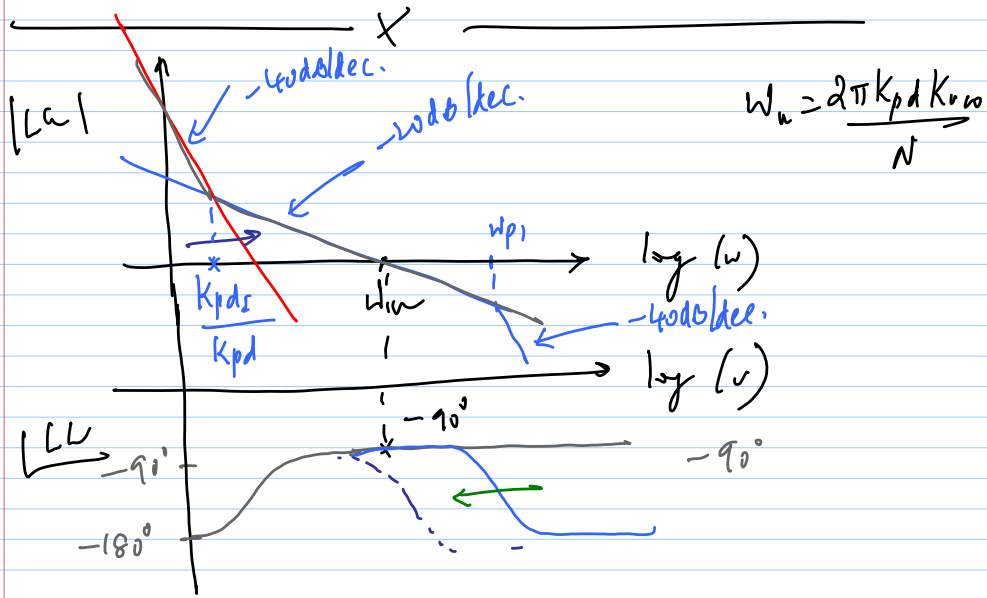 X
-40dB/dec.
-20dB/dec.
|LG|
ωu = 2π Kpd Kvco / N
ωp1
log (ω)
KpdI / Kpd
-40dB/dec.
log (ω)
-90°
-90°
-90°
-180°